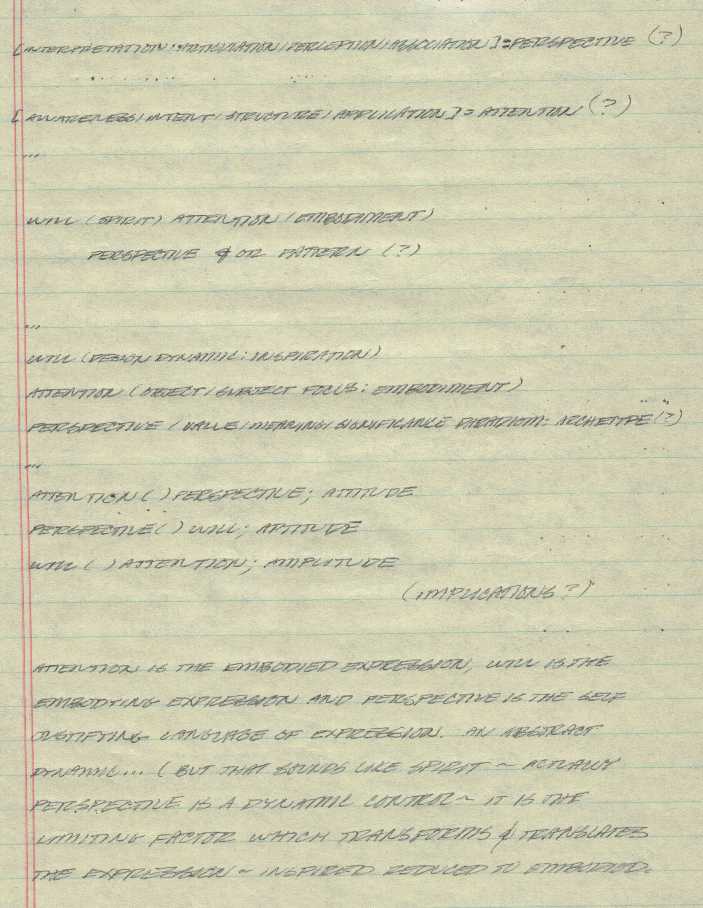 [INTERPRETATION: MOTIVATION / PERCEPTION / ASSOCIATION] = PERSPECTIVE (?)
[AWARENESS / INTENT / STRUCTURE / APPLICATION] = ATTENTION (?)
...
WILL (SPIRIT) ATTENTION (EMBODIMENT)
PERSPECTIVE & OR PATTERN (?)
...
WILL (DESIGN DYNAMIC: INSPIRATION)
ATTENTION (OBJECT / SUBJECT FOCUS: EMBODIMENT)
PERSPECTIVE (VALUE / MEANING / SIGNIFICANCE PARADIGM: ARCHETYPE (?)
...
ATTENTION ( ) PERSPECTIVE; ATTITUDE
PERSPECTIVE ( ) WILL; APTITUDE
WILL ( ) ATTENTION; AMPLITUDE
(IMPLICATIONS?)
ATTENTION IS THE EMBODIED EXPRESSION, WILL IS THE
EMBODYING EXPRESSION AND PERSPECTIVE IS THE SELF
JUSTIFYING LANGUAGE OF EXPRESSION. AN ABSTRACT
DYNAMIC... (BUT THAT SOUNDS LIKE SPIRIT ~ ACTUALLY
PERSPECTIVE IS A DYNAMIC CONTROL ~ IT IS THE
LIMITING FACTOR WHICH TRANSFORMS & TRANSLATES
THE EXPRESSION ~ INSPIRED REDUCED TO EMBODIED.